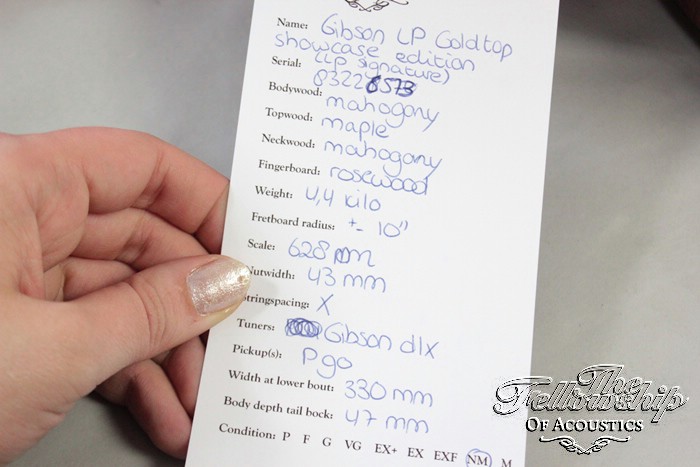 Name: Gibson LP Goldtop
showcase edition
(LP signature)
Serial: 83228573
Bodywood: mahogany
Topwood: maple
Neckwood: mahogany
Fingerboard: rosewood
Weight: 4,4 kilo
Fretboard radius: +- 10"
Scale: 628 mm
Nutwidth: 43 mm
Stringspacing: X
Tuners: Gibson dlx
Pickup(s): P90
Width at lower bout: 330 mm
Body depth tail bock: 47 mm
Condition: P F G VG EX+ EX EXF NM M
The
Fellowship
Of Acoustics